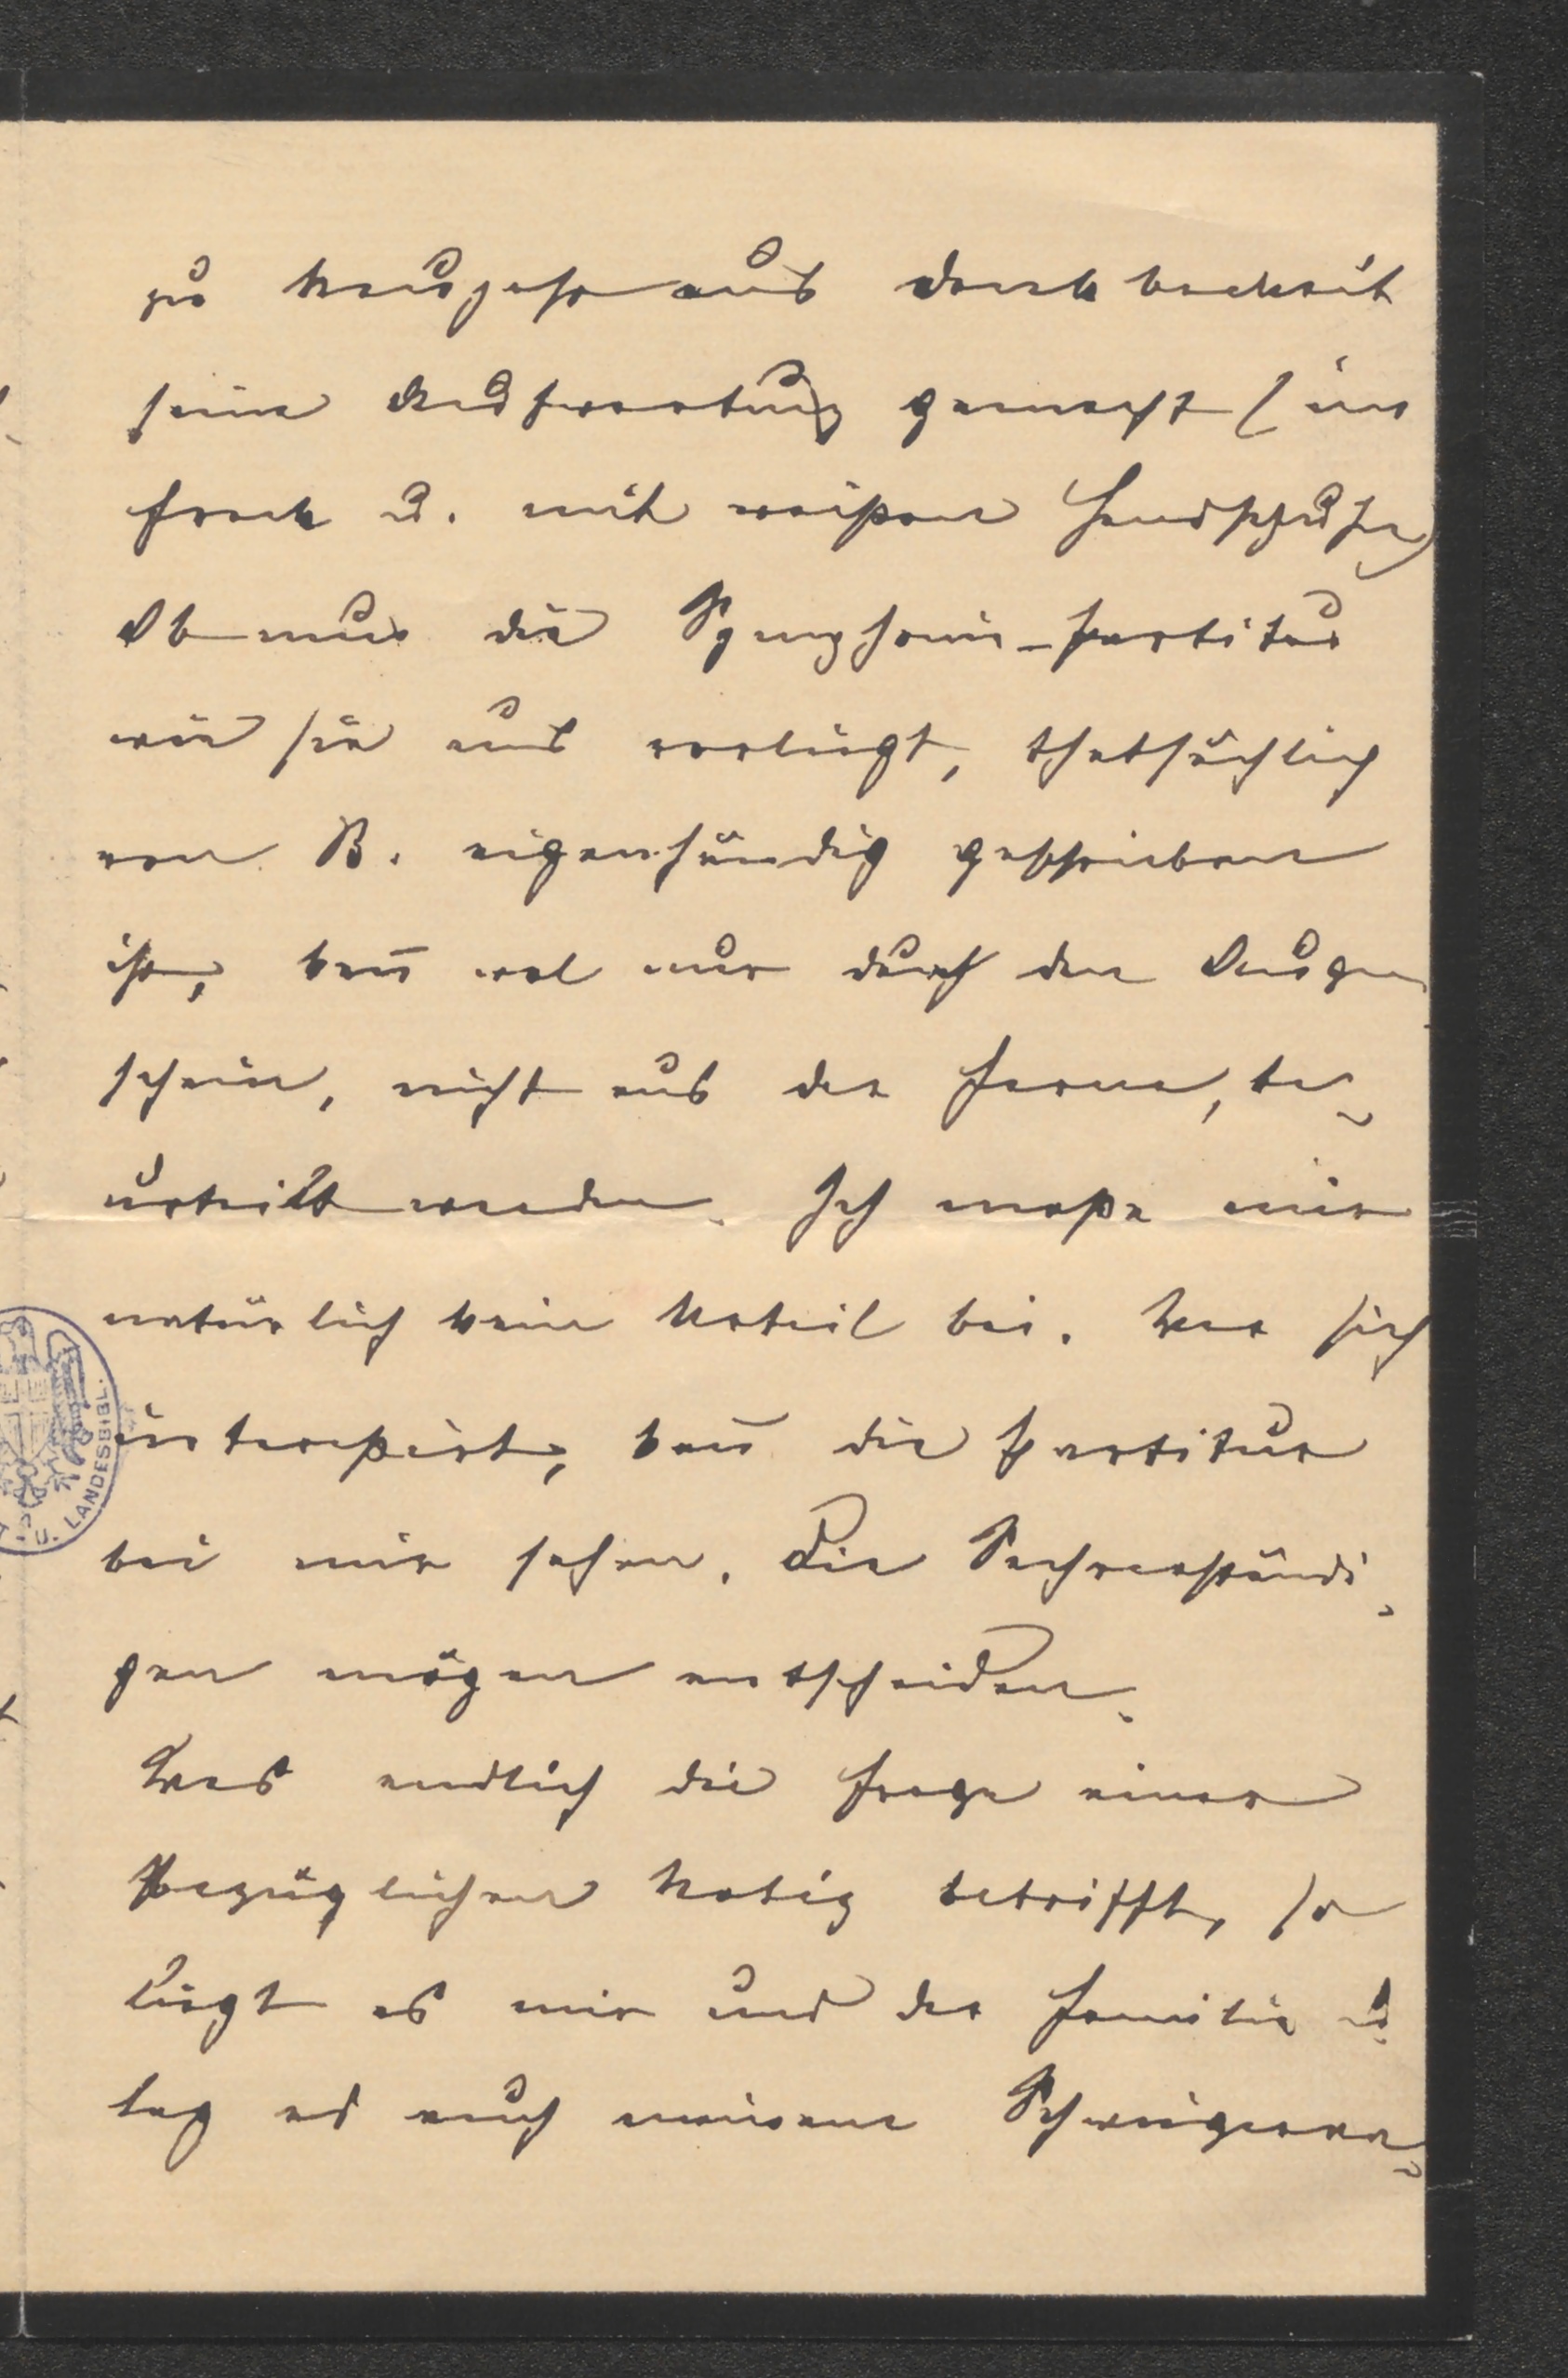 zu Neujahr aus Dankbarkeit
seine Aufwartung gemacht (im
Frack u. mit weißen Handschuhen)
Ob nun die Symphonie-Partitur
wie sie uns vorliegt, thatsächlich
von B. eigenhändig geschrieben
ist, kan̄ wol nur durch den Augen
schein, nicht aus der Ferne, be-
urteilt werden. Ich maße mir
natürlich kein Urteil bei. Wer sich
interessirt, kan̄ die Partitur
bei mir sehen. Die Sachverständi-
gen mögen entscheiden.
Was endlich die Frage einer
bezüglichen Notiz betrifft, so
liegt es mir und der Familie u.
lag es auch meinem Schwigerva-
U. LANDESBIBL.